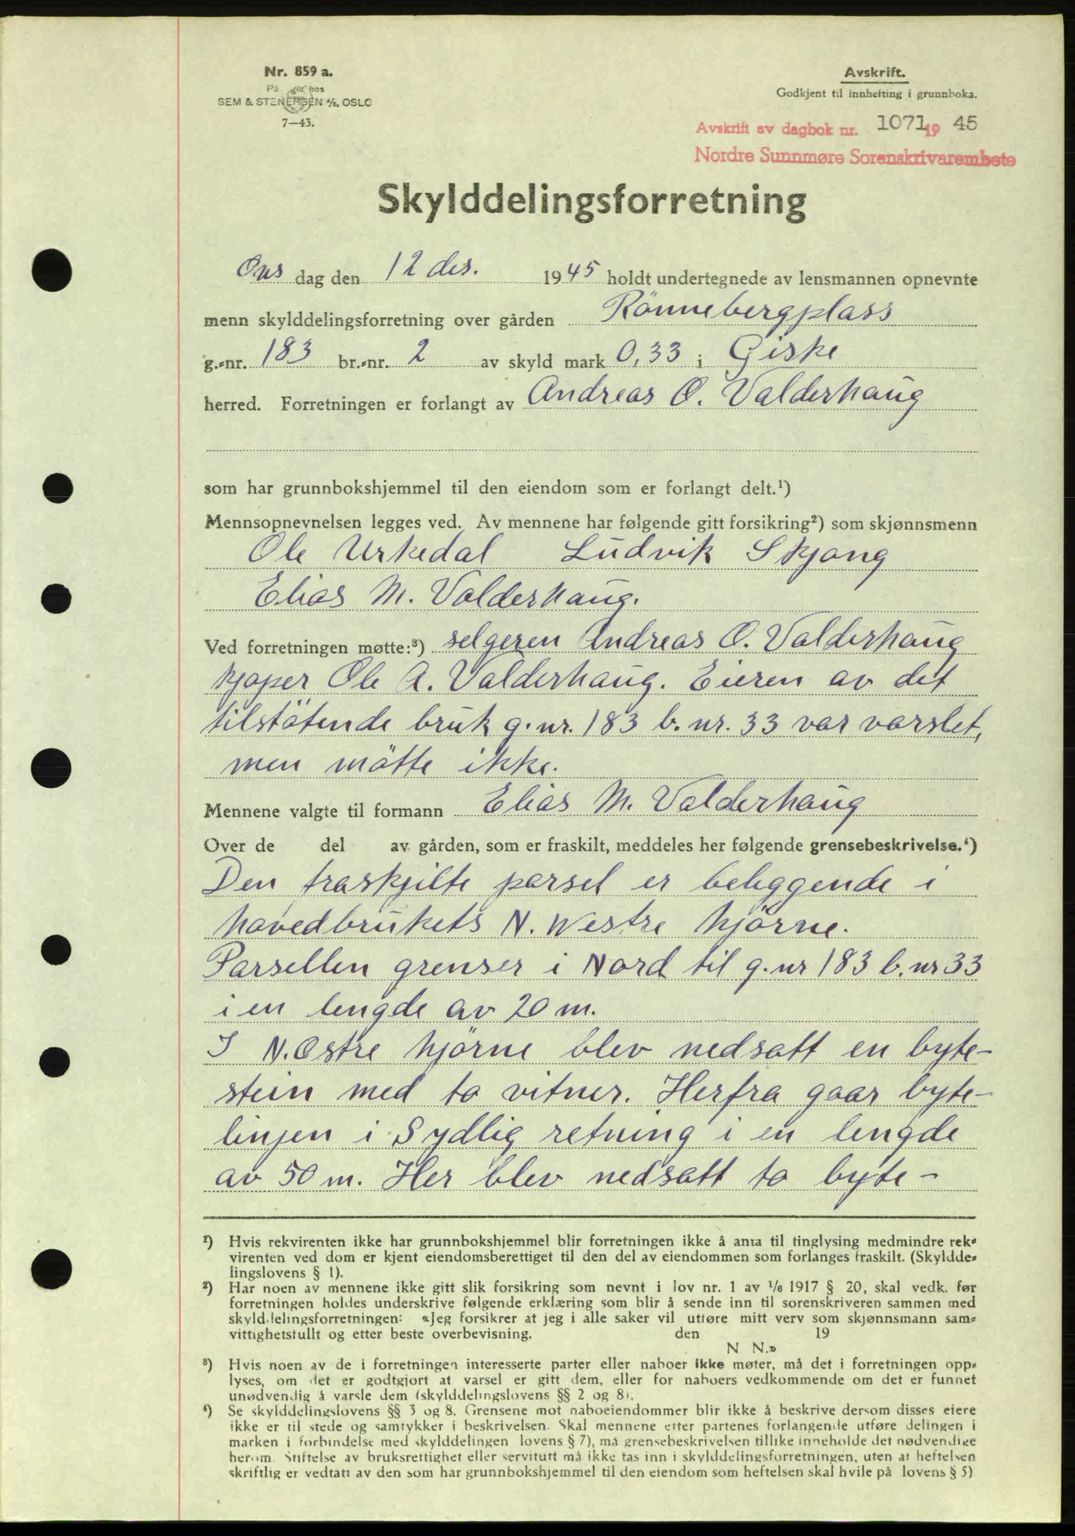 Nr. 859 a.
På lager hos
SEM & STENERSEN A/S, OSLO
7—43.
Avskrift.
Godkjent til innhefting i grunnboka.
Avskrift av dagbok nr. 1071 19 45
Nordre Sunnmøre Sorenskrivarembete
Skylddelingsforretning
Ons dag den 12 des. 1945 holdt undertegnede av lensmannen opnevnte
menn skylddelingsforretning over gården Rönnebergplass
g.-nr. 183 br.-nr. 2 av skyld mark 0,33 i Giske
herred. Forretningen er forlangt av Andreas O. Valderhaug
som har grunnbokshjemmel til den eiendom som er forlangt delt.¹)
Mennsopnevnelsen legges ved. Av mennene har følgende gitt forsikring²) som skjønnsmenn
Ole Urkedal Ludvik Skjong
Elias M. Valderhaug.
Ved forretningen møtte:³) selgeren Andreas O. Valderhaug
kjøper Ole A. Valderhaug. Eieren av det
tilstötende bruk g.nr. 183 b.nr. 33 var varslet,
men mötte ikke.
Mennene valgte til formann Elias M. Valderhaug
Over de del av gården, som er fraskilt, meddeles her følgende grensebeskrivelse.⁴)
Den fraskjilte parsel er beliggende i
hovedbrukets N. Westre hjörne.
Parsellen grenser i Nord til g.nr 183 b.nr 33
i en lengde av 20 m.
I N. Östre hjörne blev nedsatt en byte-
stein med to vitner. Herfra gaar byte-
linjen i Sydlig retning i en lengde
av 50 m. Her blev nedsatt to byte-
¹) Hvis rekvirenten ikke har grunnbokshjemmel blir forretningen ikke å anta til tinglysing medmindre rek-
virenten ved dom er kjent eiendomsberettiget til den del av eiendommen som forlanges fraskilt. (Skyldde-
lingslovens § 1).
²) Har noen av mennene ikke gitt slik forsikring som nevnt i lov nr. 1 av 1/6 1917 § 20, skal vedk. før
forretningen holdes underskrive følgende erklæring som blir å sende inn til sorenskriveren sammen med
skylddelingsforretningen: «Jeg forsikrer at jeg i alle saker vil utføre mitt verv som skjønnsmann sam-
vittighetsfullt og etter beste overbevisning. den 19
N N.»
³) Hvis noen av de i forretningen interesserte parter eller naboer ikke møter, må det i forretningen opp-
lyses, om det er godtgjort at varsel er gitt dem, eller for naboers vedkommende om det er funnet
unødvendig å varsle dem (skylddelingslovens §§ 2 og 8).
⁴) Se skylddelingslovens §§ 3 og 8. Grensene mot naboeiendommer blir ikke å beskrive dersom disses eiere
ikke er til stede og samtykker i beskrivelsen. Skal mennene etter partenes forlangende utføre delingen i
marken i forbindelse med skylddelingen lovens § 7), må grensebeskrivelsen tillike inneholde det nødvendige
herom. Stiftelse av bruksrettighet eller servitutt må ikke tas inn i skylddelingsforretningen, uten at heftelsen
skriftlig er vedtatt av den som har grunnbokshjemmel til den eiendom som heftelsen skal hvile på lovens § 5)